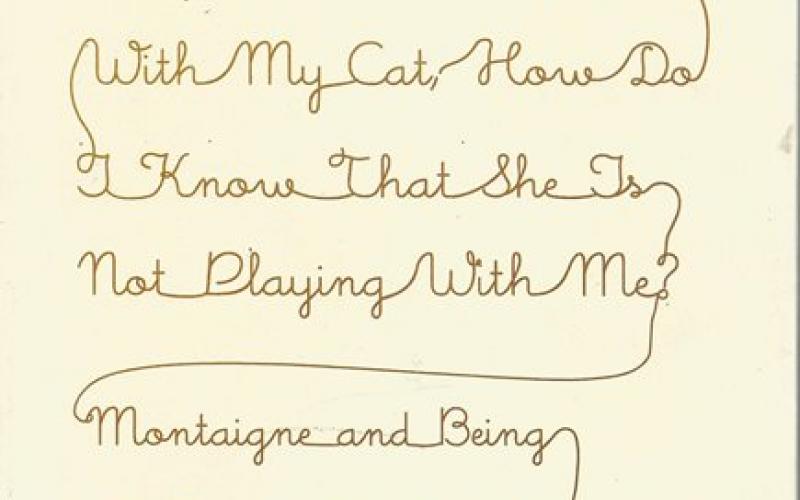 With My Cat, How Do
I Know That She Is
Not Playing With Me?
Montaigne and Being